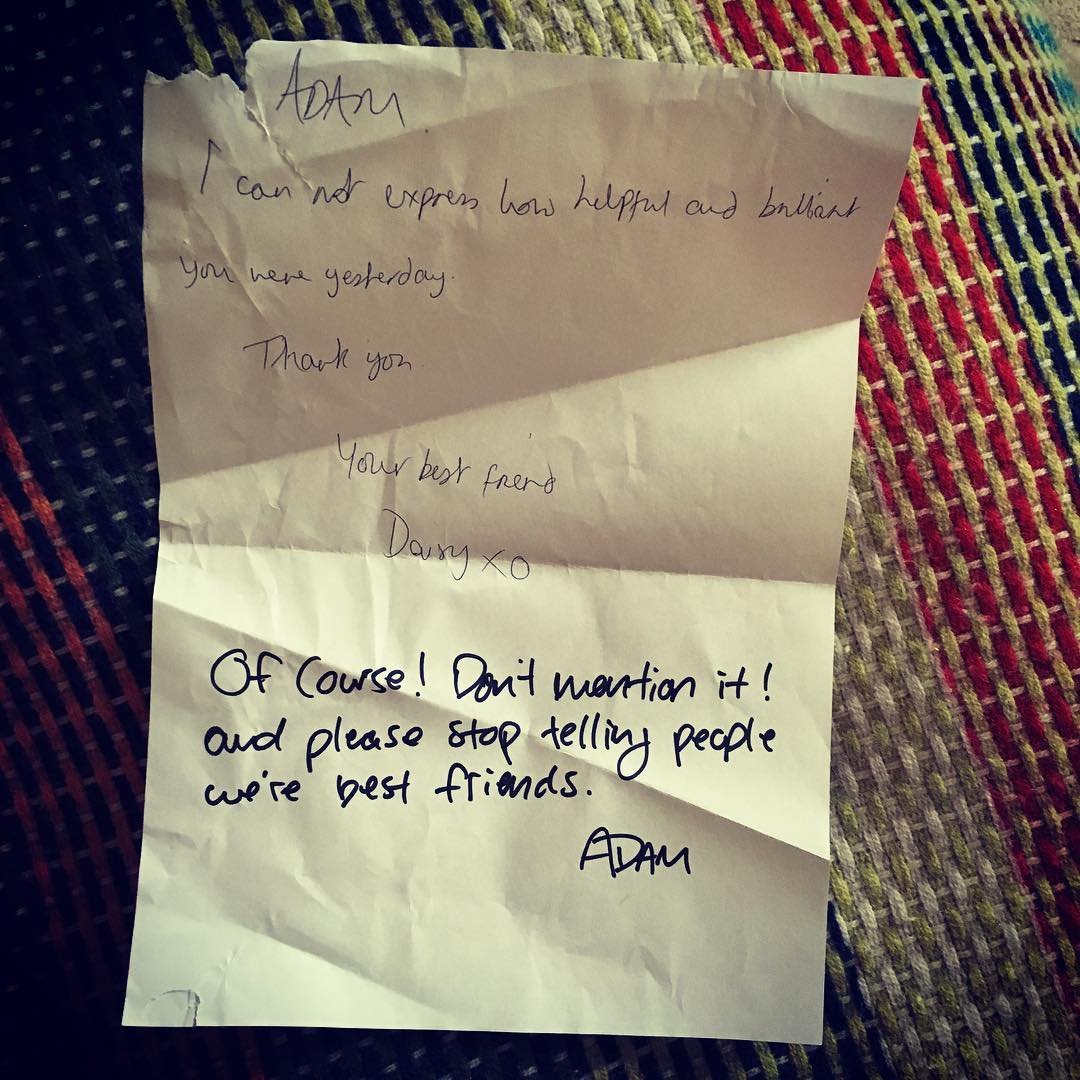 ADAM
I can not express how helpful and brilliant
you were yesterday.
Thank you
Your best friend
Daisy xo
Of Course! Don't mention it!
and please stop telling people
we're best friends.
ADAM